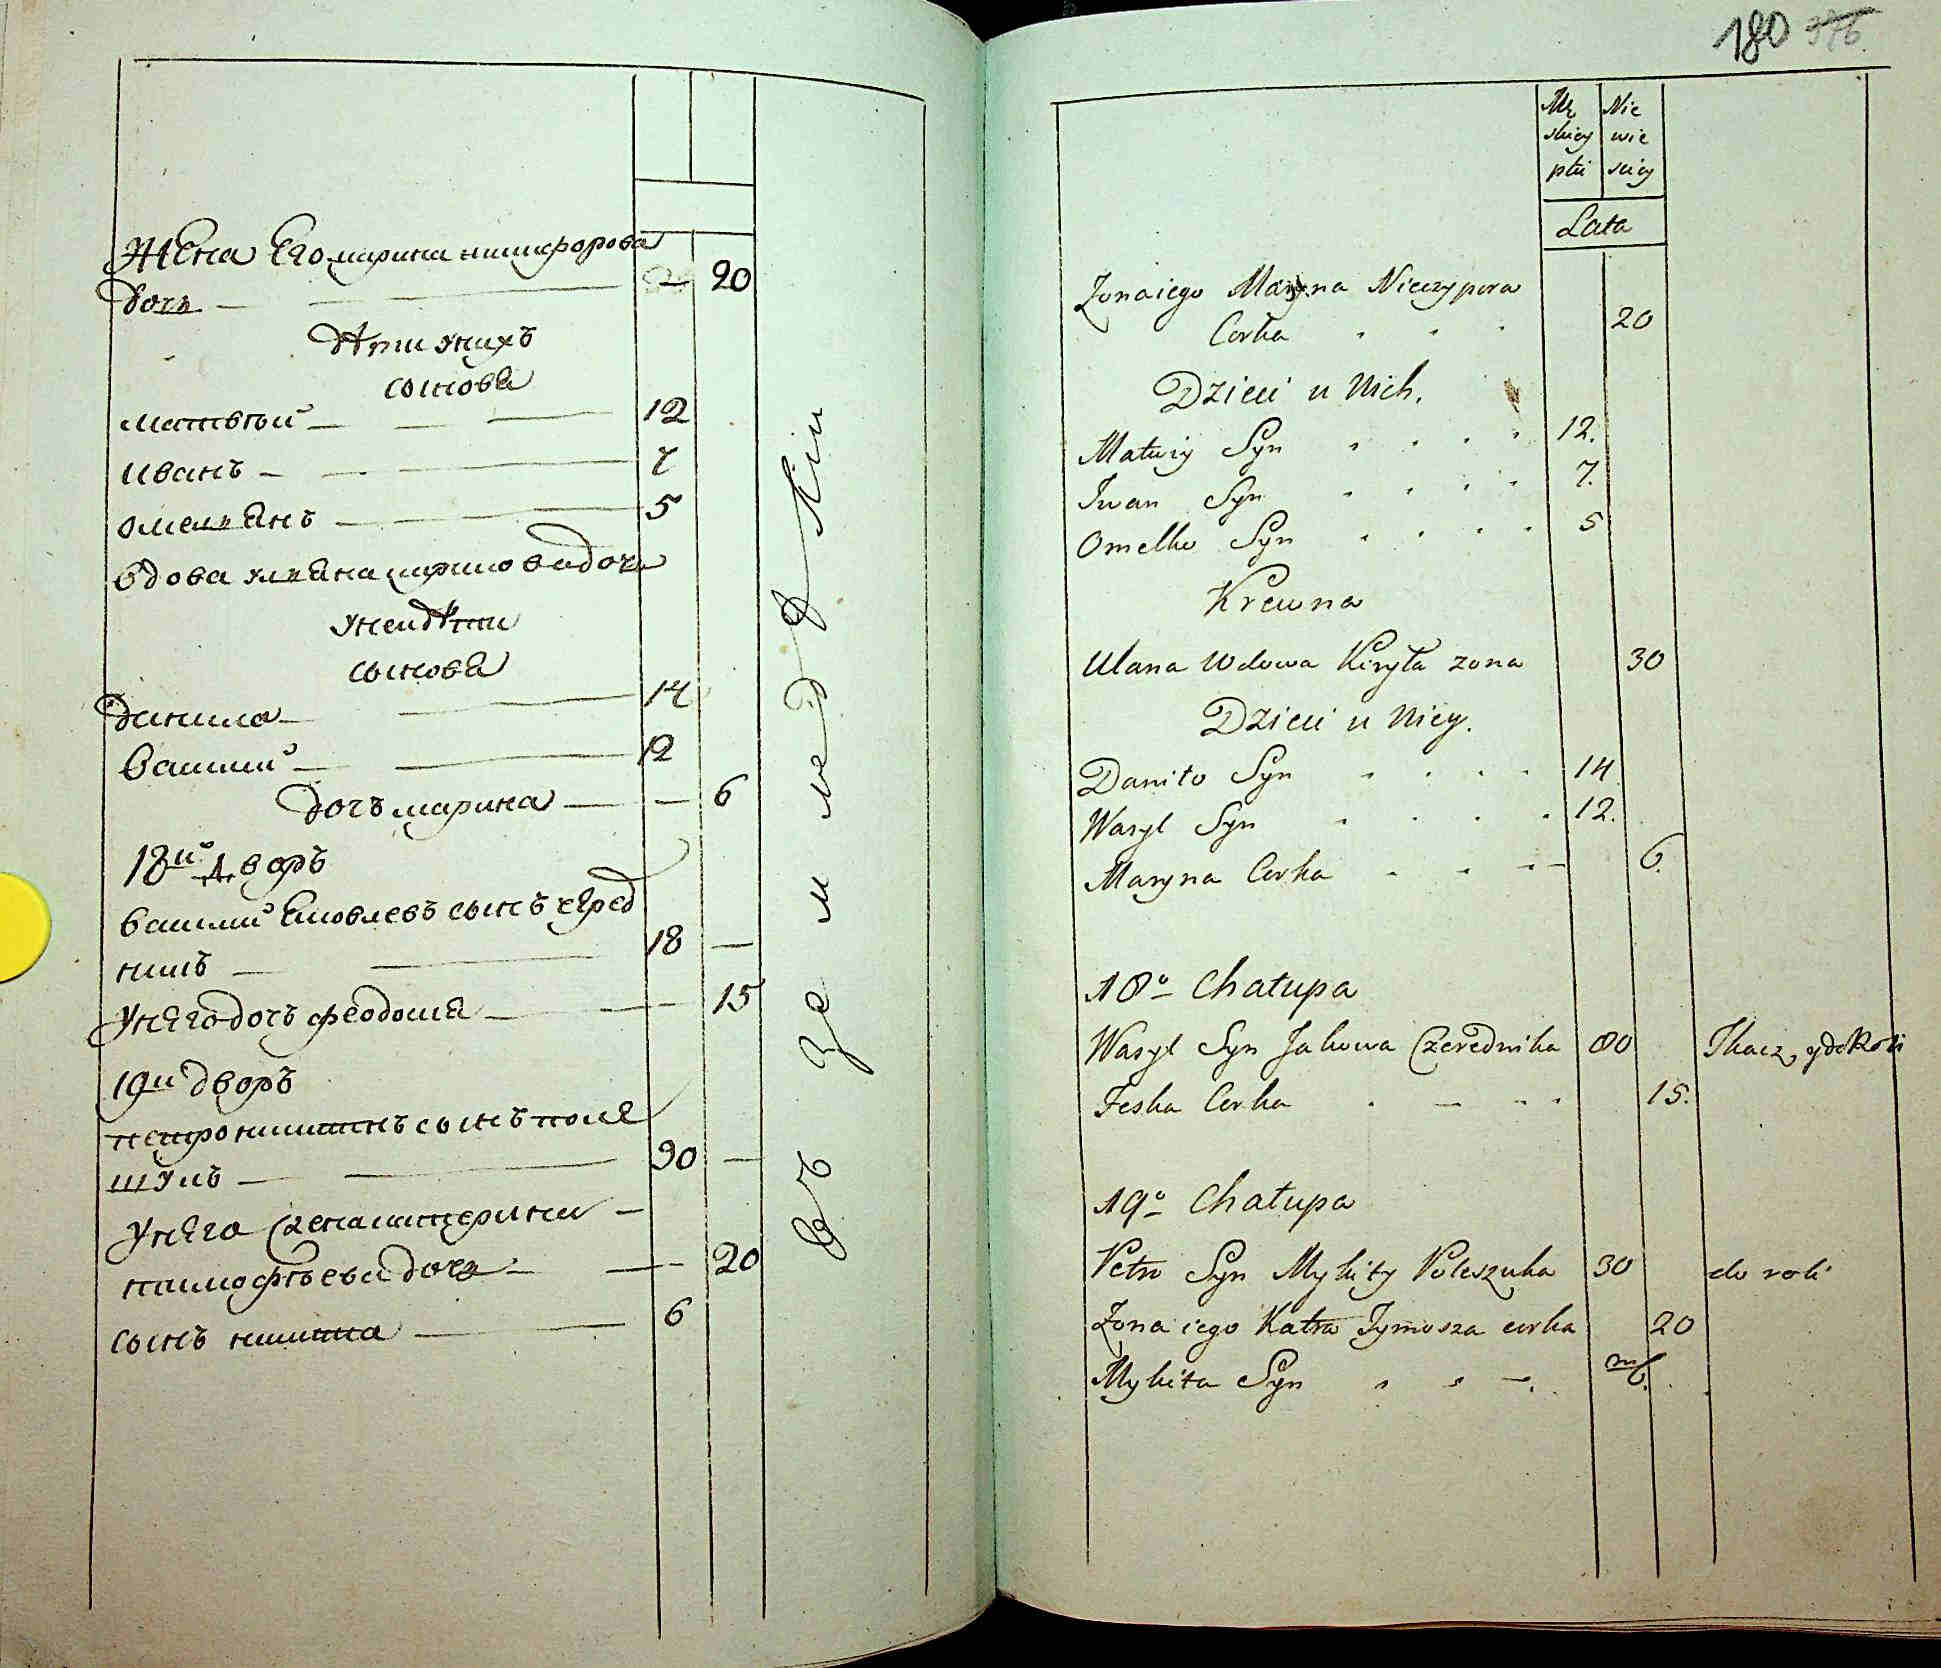 Жена Его марина никифорова
дочь — — — — 20
дѣти унихъ
сыновя
матвѣй — — — 12
иванъ — — — 7
омельянъ — — 5
вдова ульяна кирилова дочь
унеи дѣти
сыновя
данила — — 14
василий — — 12
дочъ марина — — 6
18й дворъ
василий яковлевъ сынъ черед
никъ — — 18 —
унего дочъ феодосия — — 15
19й дворъ
петро никитинъ сынъ поле
шукъ — — 30 —
унего жена катерина —
тимофѣева дочь — — 20
сынъ никита — 6
въ земледѣлии
180 376
Mę Nie
skiey wie
płci sciey
Lata
Zona iego Maryna Nieczypora
Corka 20
Dzieci u Nich.
Matwiy Syn 12.
Iwan Syn 7.
Omelko Syn 5
Krewna
Ulana Wdowa Kiryła zona 30
Dzieci u Niey.
Daniło Syn 14
Wasyl Syn 12.
Maryna Corka 6.
18o Chałupa
Wasyl Syn Jakowa Czerednika 80 Tkacz, y do Roli
Feska Corka 15.
19o Chałupa
Petro Syn Mykity Poleszuka 30 do roli
Zona iego Katra Tymosza corka 20
Mykita Syn 6.